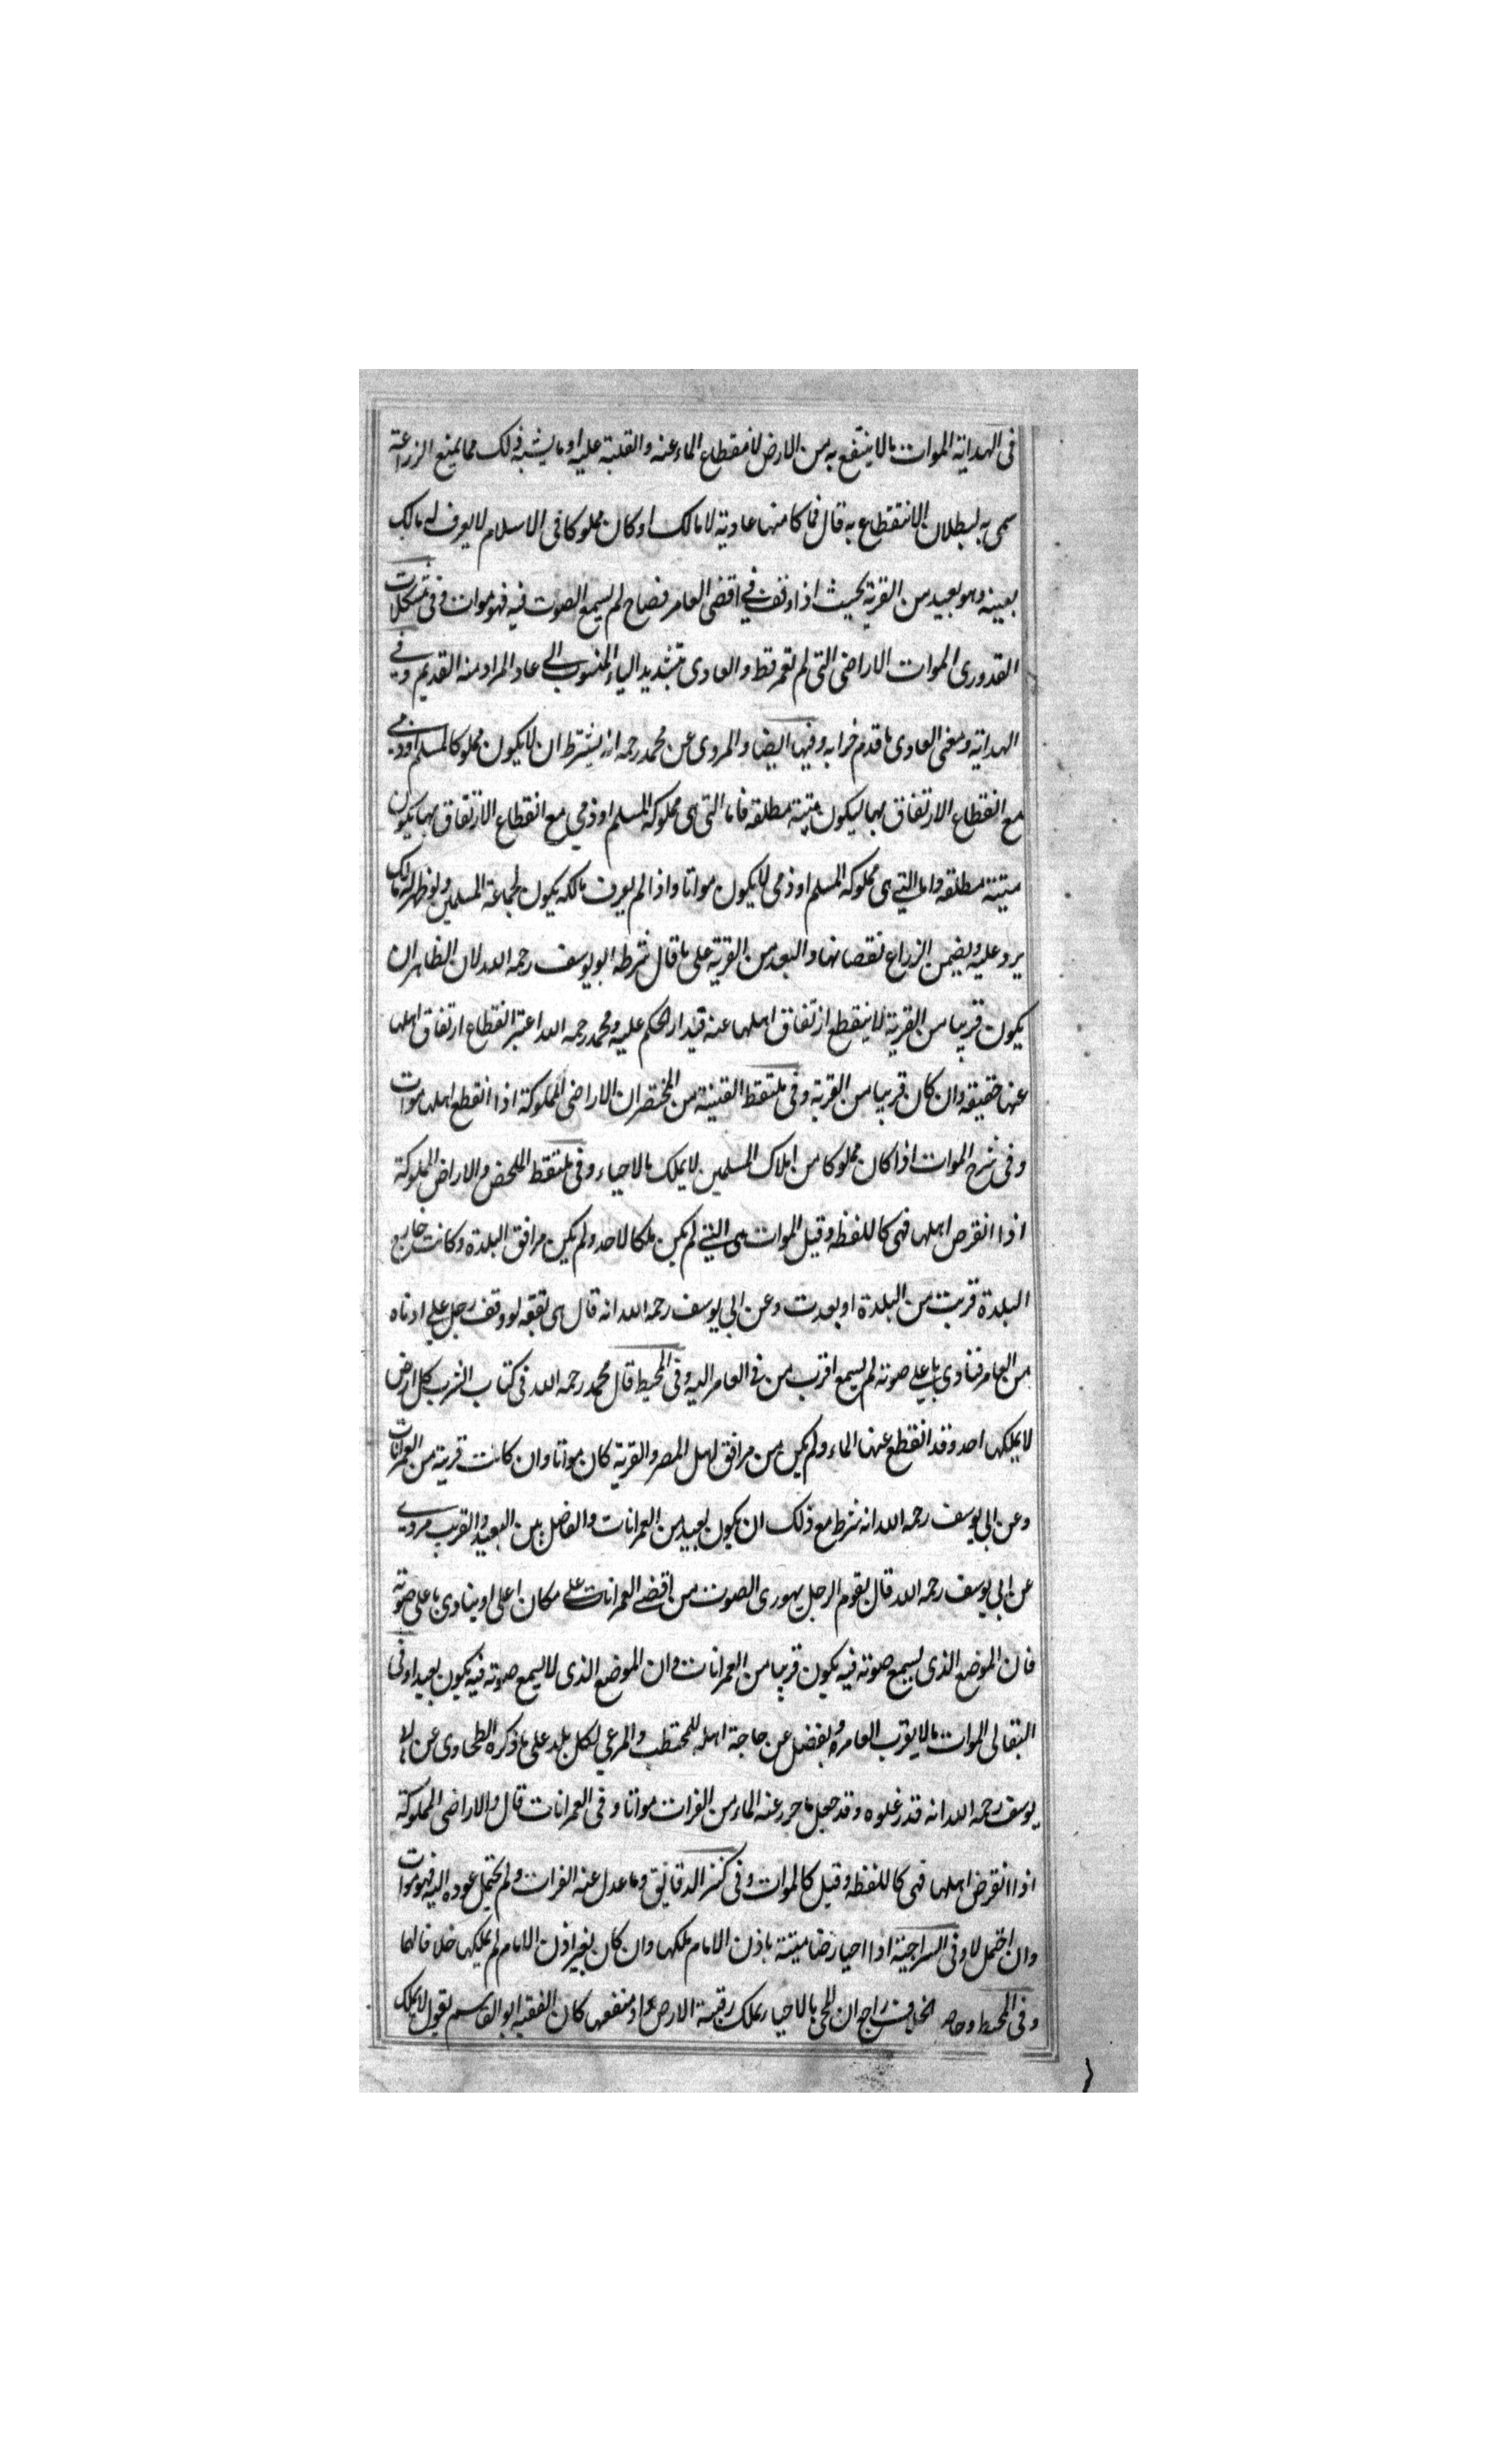 فى الهداية الموات مالا ينتفع به من الارض لانقطاع الماء عنه والغلبة عليه او ما يشبه ذلك مما يمنع الزراعة
سمى به لبطلان الانتقطاع به قال فما كا منها عادية لا مالك او كان مملوكا فى الاسلام لا يعرف له مالك
بعينه وهو بعيد من القرية بحيث اذا وقف في اقصى العامر فصاح لم يسمع الصوت فيه فهو موات وفى مشكلات
القدورى الموات الاراضى التى لم تعمر قط والعادى بتشديد الياء المنسوب الى عاد المراد منه القديم وفي
الهداية ومعنى العادى ما قدم خرابه وفيها ايضا والمروى عن محمد رحمه انه يشترط ان لا يكون مملوكا لمسلم او ذمي
مع انقطاع الارتفاق بها ليكون ميتة مطلقه فاما التى هى مملوكة لمسلم او ذمي مع انقطاع الارتفاق بها يكون
ميتة مطلقه واما التي هى مملوكة لمسلم او ذمى لا يكون مواتا واذا لم يعرف مالكه يكون لجماعة المسلمين ولو ظهر له مالك
يرد عليه ويضمن الزراع نقصانها والبعد من القرية على ما قال شرطه ابو يوسف رحمه الله لان الظاهر ان
يكون قريبا من القرية لا ينقطع ارتفاق اهلها عنه فيدار الحكم عليه ومحمد رحمه الله اعتبر انقطاع ارتفاق اهلها
عنها حقيقه وان كان قريبا من القرية وفى ملتقط القنية من المختصر ان الاراضى المملوكة اذا انقطع اهلها موات
وفى شرح الموات اذا كان مملوكا من املاك المسلمين لا يملك بالاحياء وفى ملتقط الملخص والاراض المملوكة
اذا انقرض اهلها فهى كاللقطه وقيل الموات هى التي لم يكن ملكا لاحد ولم يكن مرافق البلدة وكانت خارج
البلدة قربت من البلدة او بعدت وعن ابى يوسف رحمه الله انه قال هى بقعه لو وقف رجل على ادناه
من العامر فنادى باعلى صوته لم يسمع اقرب من في العامر اليه وفى المحيط قال محمد رحمه الله فى كتاب الشرب كل ارض
لا يملكها احد وقد انقطع عنها الماء ولم يكن من مرافق اهل المصر والقرية كان مواتا وان كانت قريبة من العمرانات
وعن ابى يوسف رحمه الله انه شرط مع ذلك ان يكون بعيد من العمرانات والفاصل بين البعيد والقريب مروي
عن ابى يوسف رحمه الله قال يقوم الرجل جهورى الصوت من اقصى العمرانات على مكان اعلى او ينادى باعلى صوته
فان الموضع الذى يسمع صوته فيه يكون قريبا من العمرانات وان الموضع الذى لا يسمع صوته فيه يكون بعيدا وفى
البقالى الموات مالا يقرب العامر ويفضل عن حاجة اهله للمحتطب والمرعي لكل بلد على ما ذكره الطحاوى عن ابى
يوسف رحمه الله انه قدر غلوه وقد جعل ما جزر عنه الماء من الفرات مواتا وفى العمرانات قال والاراضى المملوكة
اذا انقرض اهلها فهى كاللقطه وقيل كالموات وفى كنز الدقايق وما عدل عنه الفرات ولم يحتمل عوده اليه فهو موات
وان احتمل لا وفى السراجية اذا احيا ارضا ميتة باذن الامام ملكها وان كان بغير اذن الامام لم يملكها خلافا لهما
وفى المحيط وحاصل الخلاف راجع ان المحى بالاحياء يملك رقبة الارض او منفعها كان الفقيه ابو القاسم يقول لا يملك